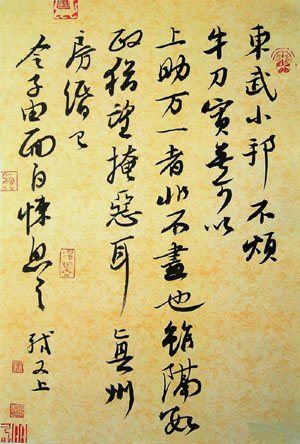 東武小邦不煩
牛刀實無可以
上助万一者非不盡也雖隔數
政猶望掩惡耳真州
房緡已
令子由面白悚息之
軾又上